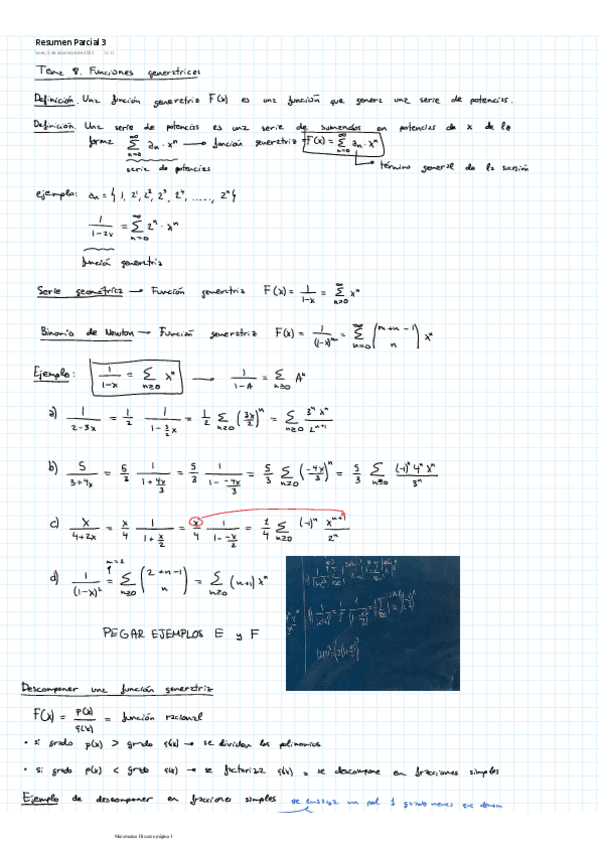 Resumen Parcial 3
Tema 8. Funciones generatrices
Definición. Una función generatriz F(x) es una función que genera una serie de potencias.
Definición. Una serie de potencias es una serie de sumandos en potencias de x de la
forma ∑_{n=0}^{∞} aₙ·xⁿ → función generatriz F(x) = ∑_{n=0}^{∞} aₙ·xⁿ
serie de potencias → término general de la sucesión
ejemplo: aₙ = { 1, 2¹, 2², 2³, 2⁴, ....., 2ⁿ }
1/(1-2x) = ∑_{n=0}^{∞} 2ⁿ·xⁿ
función generatriz
Serie geométrica → Función generatriz F(x) = 1/(1-x) = ∑_{n≥0}^{∞} xⁿ
Binomio de Newton → Función generatriz F(x) = 1/(1-x)ᵐ = ∑_{n=0}^{∞} (m+n-1 n) xⁿ
Ejemplo: 1/(1-x) = ∑_{n≥0} xⁿ → 1/(1-A) = ∑_{n≥0} Aⁿ
a) 1/(2-3x) = 1/2 1/(1-3/2 x) = 1/2 ∑_{n≥0} (3x/2)ⁿ = ∑_{n≥0} 3ⁿ xⁿ/2ⁿ⁺¹
b) 5/(3+4x) = 5/3 1/(1+4x/3) = 5/3 1/(1--4x/3) = 5/3 ∑_{n≥0} (-4x/3)ⁿ = 5/3 ∑_{n≥0} (-1)ⁿ 4ⁿ xⁿ/3ⁿ
c) x/(4+2x) = x/4 1/(1+x/2) = x/4 1/(1--x/2) = 1/4 ∑_{n≥0} (-1)ⁿ xⁿ⁺¹/2ⁿ
m=2
d) 1/(1-x)² = ∑_{n≥0} (2+n-1 n) = ∑_{n≥0} (n+1) xⁿ
PEGAR EJEMPLOS E y F
Descomponer una función generatriz
F(x) = p(x)/q(x) = función racional
• si grado p(x) > grado q(x) → se dividen los polinomios
• si grado p(x) < grado q(x) → se factoriza q(x) y se descompone en fracciones simples
Ejemplo de descomponer en fracciones simples
Matemática Discreta página 1